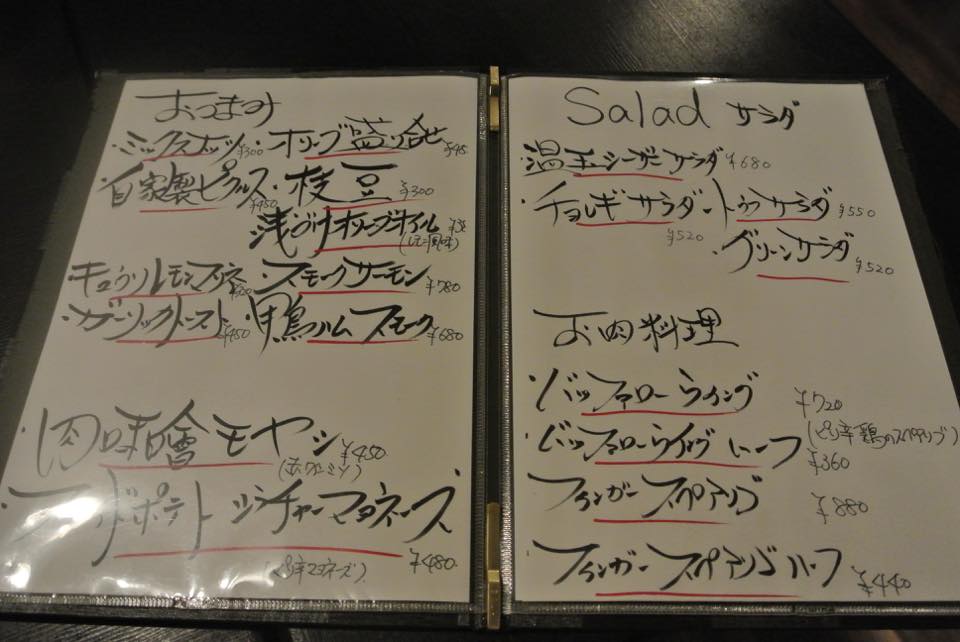 おつまみ
・ミックスナッツ ¥300 ・オリーブ盛り合せ
・自家製ピクルス ¥450 ・枝豆 ¥300
浅づけオリーブオイル
キュウリレモンマリネ ・スモークサーモン ¥780
・ガーリックトースト ¥450 ・鴨ハムスモーク ¥680
・肉味噌モヤシ ¥450
・フライドポテト ジンジャーマヨネーズ
(ピリ辛マヨネーズ) ¥480
Salad サラダ
・温玉シーザーサラダ ¥680
・チョレギサラダ ・トウフサラダ ¥550
¥520
・グリーンサラダ ¥520
お肉料理
・バッファローウイング ¥720
(ピリ辛鶏のスペアリブ)
・バッファローウイング ハーフ ¥360
・フィンガースペアリブ ¥880
・フィンガースペアリブハーフ ¥440